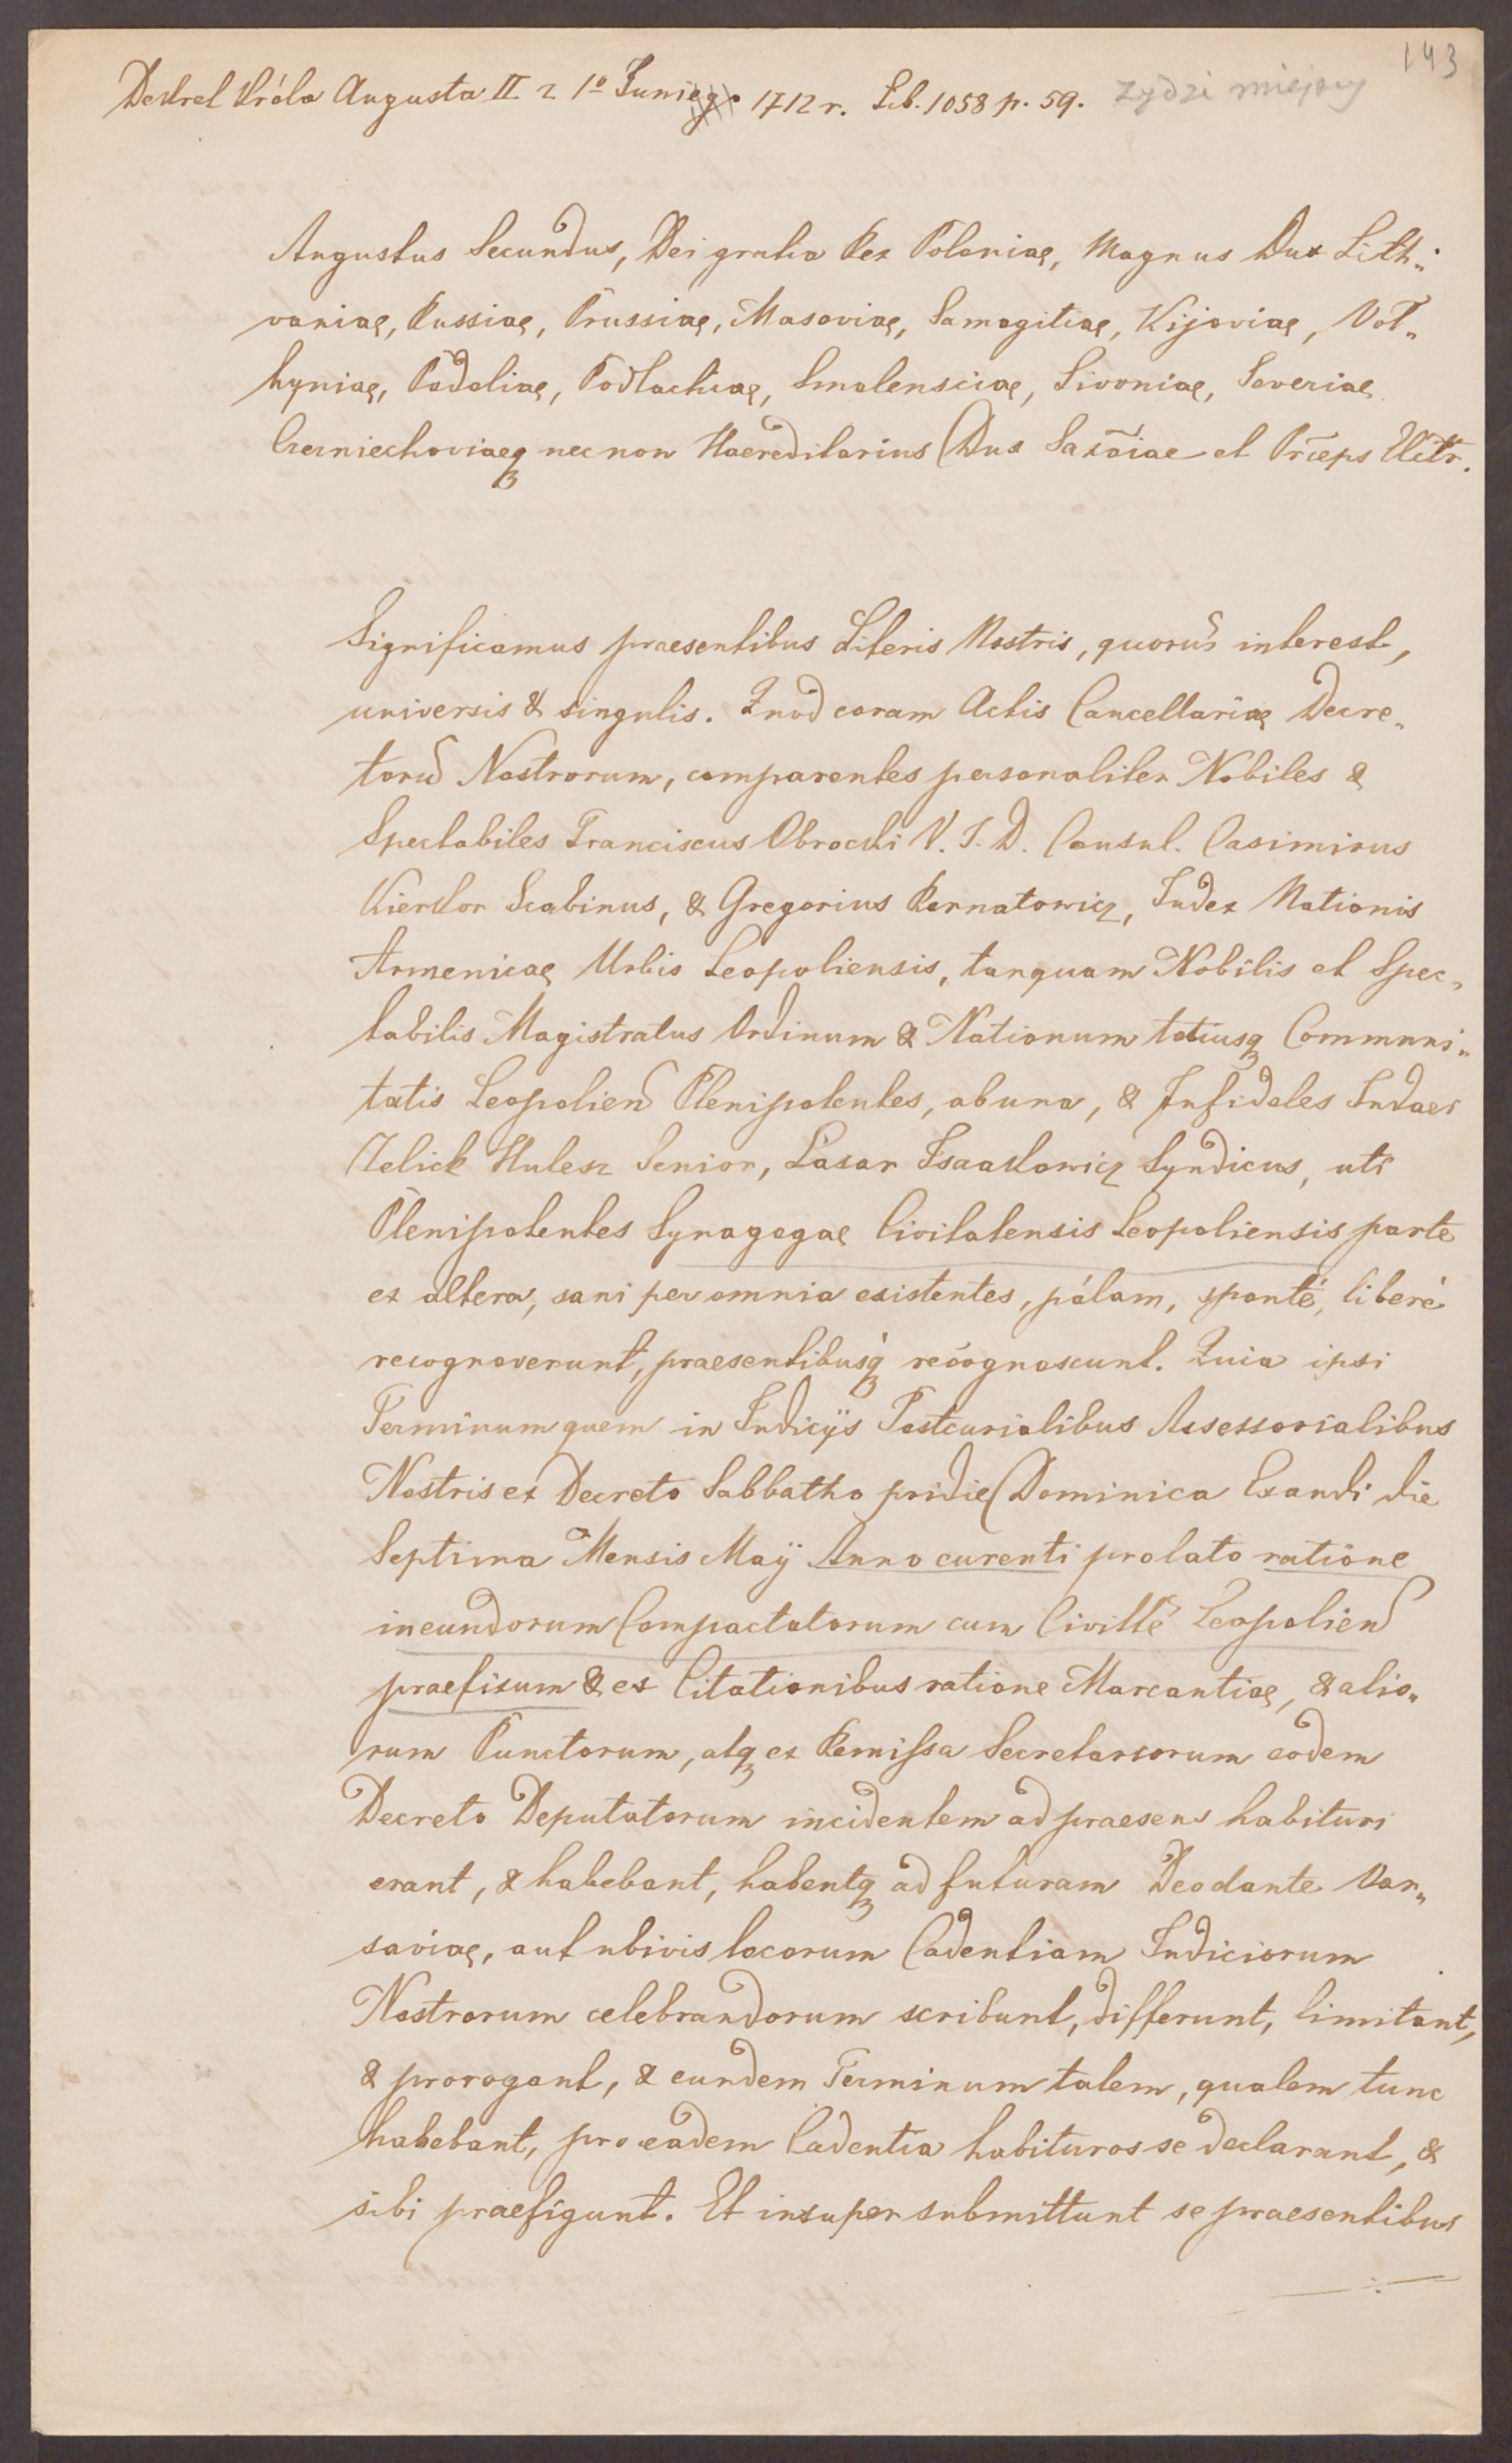 143
Dekret Króla Augusta II z 1º Junii 1712 r. Lib. 1058 p. 59. żydzi miejscy
Augustus Secundus, Dei gratia Rex Poloniae, Magnus Dux Lith„
vaniae, Russiae, Prussiae, Masoviae, Samogitiae, Kijoviae, Vol„
hyniae, Podoliae, Podlachiae, Smolensciae, Livoniae, Severiae
Czerniechoviaeq nec non Haereditarius Dux Saxõiae et Prĩceps Elctr.
Significamus praesentibus Literis Nostris, quorũ interest,
universis & singulis. Quod coram Actis Cancellariae Decre„
torũ Nostrorum, comparentes personaliter Nobiles &
Spectabiles Franciscus Obrocki V. J. D. Consul. Casimirus
Kierkor Scabinus, & Gregorius Bernatowicz, Judex Nationis
Armenicae Urbis Leopoliensis, tanquam Nobilis et Spec„
tabilis Magistratus Ordinum & Nationum totiusq Communi„
tatis Leopolien Plenipotentes, ab una, & Infideles Judaei
Zelick Kulesz Senior, Lazar Isaakowicz Syndicus, uti
Plenipotentes Synagogae Civitatensis Leopoliensis parte
ex altera, sani per omnia existentes, pálam, sponté, liberé
recognoverunt, praesentibusq́ recognoscunt. Quia ipsi
Terminum quem in Judicÿs Postcurialibus Assessorialibus
Nostris ex Decreto Sabbatho pridie Dominica Exaudi die
Septima Mensis Maÿ Anno curenti prolato ratione
ineundorum Compactatorum cum Civitte Leopolien
praefixum & ex Citationibus ratione Marcantiae, & alio„
rum Punctorum, atq ex Remissa Secretariorum eodem
Decreto Deputatorum incidentem ad praesens habituri
erant, & habebant, habentq ad futuram Deodante Var„
saviae, aut ubivis locorum Cadentiam Judiciorum
Nostrorum celebrandorum scribunt, differunt, limitant,
& prorogant, & eundem Terminum talem, qualem tunc
habebant, pro eadem Cadentia habituros se declarant, &
sibi praefigunt. Et insuper submittunt se praesentibus